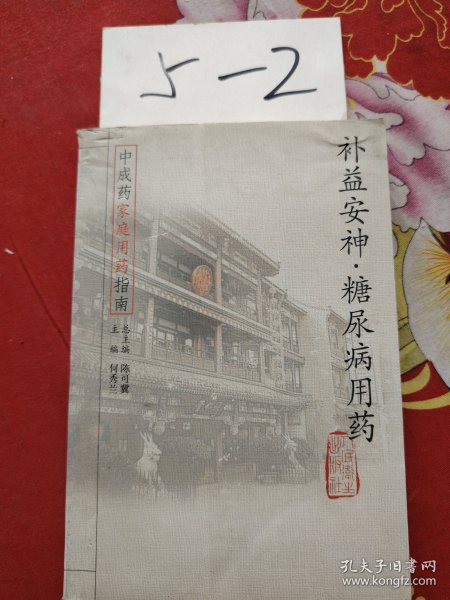 5-2
补益安神·糖尿病用药
中成药家庭用药指南
总主编 陈可冀
主编 何秀兰
孔夫子旧书网
www.kongfz.com